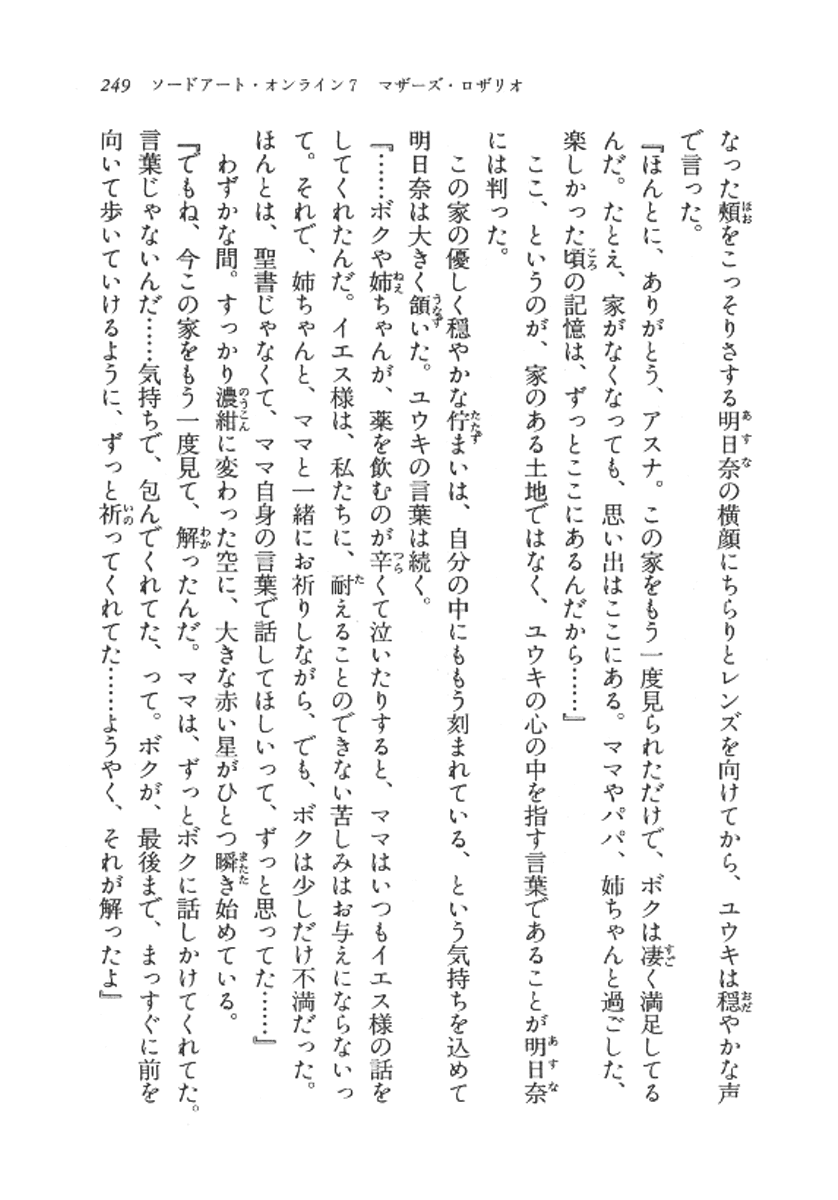 249　ソードアート・オンライン7　マザーズ・ロザリオ
なった頬をこっそりさする明日奈の横顔にちらりとレンズを向けてから、ユウキは穏やかな声
で言った。
『ほんとに、ありがとう、アスナ。この家をもう一度見られただけで、ボクは凄く満足してる
んだ。たとえ、家がなくなっても、思い出はここにある。ママやパパ、姉ちゃんと過ごした、
楽しかった頃の記憶は、ずっとここにあるんだから……』
　ここ、というのが、家のある土地ではなく、ユウキの心の中を指す言葉であることが明日奈
には判った。
　この家の優しく穏やかな佇まいは、自分の中にももう刻まれている、という気持ちを込めて
明日奈は大きく頷いた。ユウキの言葉は続く。
『……ボクや姉ちゃんが、薬を飲むのが辛くて泣いたりすると、ママはいつもイエス様の話を
してくれたんだ。イエス様は、私たちに、耐えることのできない苦しみはお与えにならないっ
て。それで、姉ちゃんと、ママと一緒にお祈りしながら、でも、ボクは少しだけ不満だった。
ほんとは、聖書じゃなくて、ママ自身の言葉で話してほしいって、ずっと思ってた……』
　わずかな間。すっかり濃紺に変わった空に、大きな赤い星がひとつ瞬き始めている。
『でもね、今この家をもう一度見て、解ったんだ。ママは、ずっとボクに話しかけてくれてた。
言葉じゃないんだ……気持ちで、包んでくれてた、って。ボクが、最後まで、まっすぐに前を
向いて歩いていけるように、ずっと祈ってくれてた……ようやく、それが解ったよ』